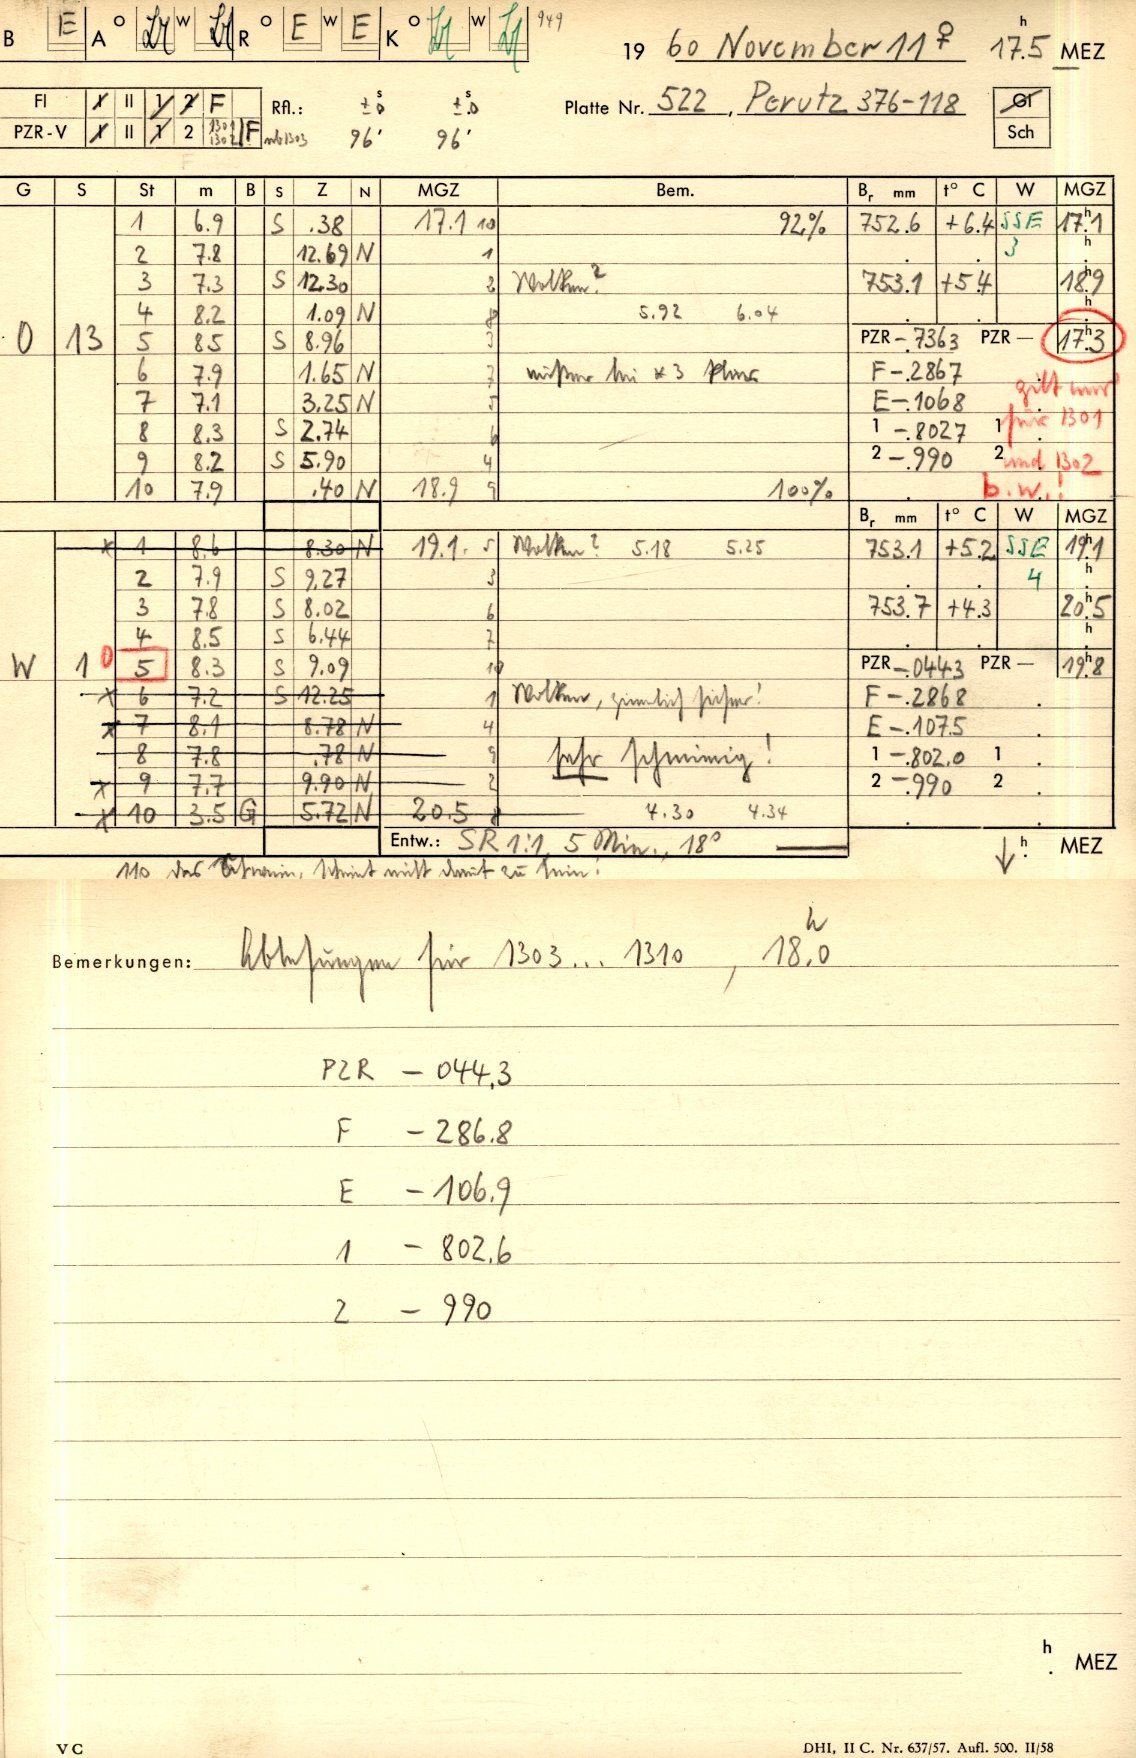 B E A O W R O E W E K O W 949
19 60 November 11 ♀ 17.5 h MEZ
FI I II 1 2 F Rfl.: ± s 0 ± s 0 Platte Nr. 522, Perutz 376-118 GI
PZR-V I II 1 2 1301 1302 F ab 1303 96' 96' Sch
G S St m B S Z N MGZ Bem. Br mm t° C W MGZ
1 6.9 S .38 17.1 10 92% 752.6 +6.4 SSE 17h1
2 7.8 12.69 N 1 3
3 7.3 S 12.30 2 Wolken? 753.1 +5.4 18h9
4 8.2 1.09 N 8 5.92 6.04
O 13 5 8.5 S 8.96 3 PZR -.7363 PZR — 17h3
6 7.9 1.65 N 7 F -.2867 gilt nur
7 7.1 3.25 N 5 E -.1068 für 1301
8 8.3 S 2.74 6 1 -.8027 1
9 8.2 S 5.90 4 2 -.990 2 und 1302
10 7.9 .40 N 18.9 9 100% b.w.!
Br mm t° C W MGZ
x 1 8.6 8.30 N 19.1 5 Wolken? 5.18 5.25 753.1 +5.2 SSE 19h1
2 7.9 S 9.27 3 4
3 7.8 S 8.02 6 753.7 +4.3 20h5
4 8.5 S 6.44 7
W 1 0 5 8.3 S 9.09 10 PZR -.0443 PZR — 19h8
x 6 7.2 S 12.25 1 Wolken, ziemlich sicher! F -.2868
x 7 8.1 8.78 N 4 E -.1075
8 7.8 .78 N 9 sehr schmierig! 1 -.802.0 1
x 9 7.7 9.90 N 2 2 -.990 2
x 10 3.5 G 5.72 N 20.5 8 4.30 4.34
Entw.: SR 1:1, 5 Min., 18° h MEZ
110 das scheint nicht damit zu sein!
Bemerkungen: Ablesungen für 1303... 1310, 18.0 h
PZR - 044.3
F - 286.8
E - 106.9
1 - 802.6
2 - 990
h MEZ
VC DHI, II C. Nr. 637/57. Aufl. 500. II/58